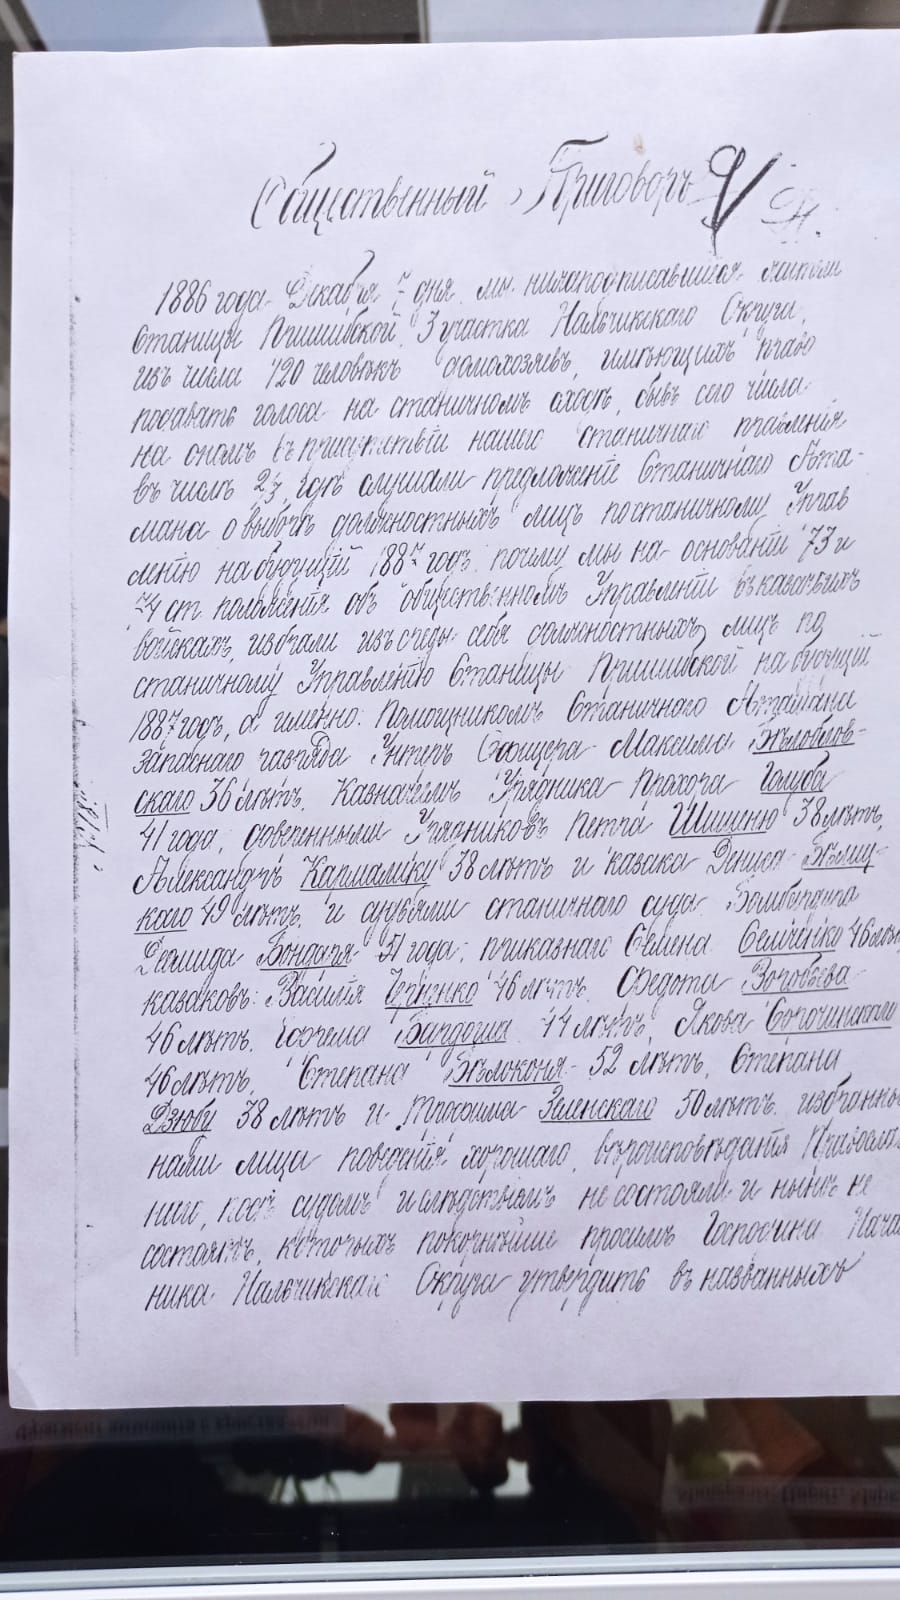 Общественный Приговоръ
1886 года Декабря 7 дня мы нижеподписавшіеся жители
Станицы Пришибской, 3 участка Нальчикскаго Округа,
изъ числа 120 человѣкъ домохозяевъ, имѣющихъ право
подавать голоса на станичномъ сходѣ, бывъ сего числа
на ономъ въ присутствіи нашего станичнаго правленія
въ числѣ гдѣ слушали предложеніе Станичнаго Ата-
мана о выборѣ должностныхъ лицъ по станичному Управ
ленію на будущій 1887 годъ почему мы на основаніи 73 и
74 ст. положенія объ общественномъ Управленіи въ казачьихъ
войскахъ, избрали изъ среды себя должностныхъ лицъ по
станичному Управленію Станицы Пришибской на будущій
1887 годъ, а именно: Помощникомъ Станичнаго Атамана
запаснаго разряда Унтеръ Офицера Максима Бѣлоблов-
скаго 36 лѣтъ, Казначеемъ Урядника Прохора Голуба
41 года, доверенными Урядниковъ Петра Шишеню 38 лѣтъ,
Александръ Кармалику 38 лѣтъ и казака Дениса
каго 49 лѣтъ, и судьями станичнаго суда Бомбардира
Демида Бондаря 51 года, приказнаго Семена Семченко 46 лѣтъ
казаковъ: Василія Черненко 46 лѣтъ, Федота Воробьева
46 лѣтъ, Ефрема 44 лѣтъ, Якова Сорочинскаго
46 лѣтъ, Степана Бѣлоконя 52 лѣтъ, Степана
Дзюбу 38 лѣтъ и Трофима Зеленскаго 50 лѣтъ избранные
нами лица поведенія хорошаго, вѣроисповѣданія Православ
наго, подъ судомъ и слѣдствіемъ не состояли и нынѣ не
состоятъ, которыхъ покорнѣйше просимъ Господина Нача
ника Нальчикскаго Округа утвердить въ названныхъ